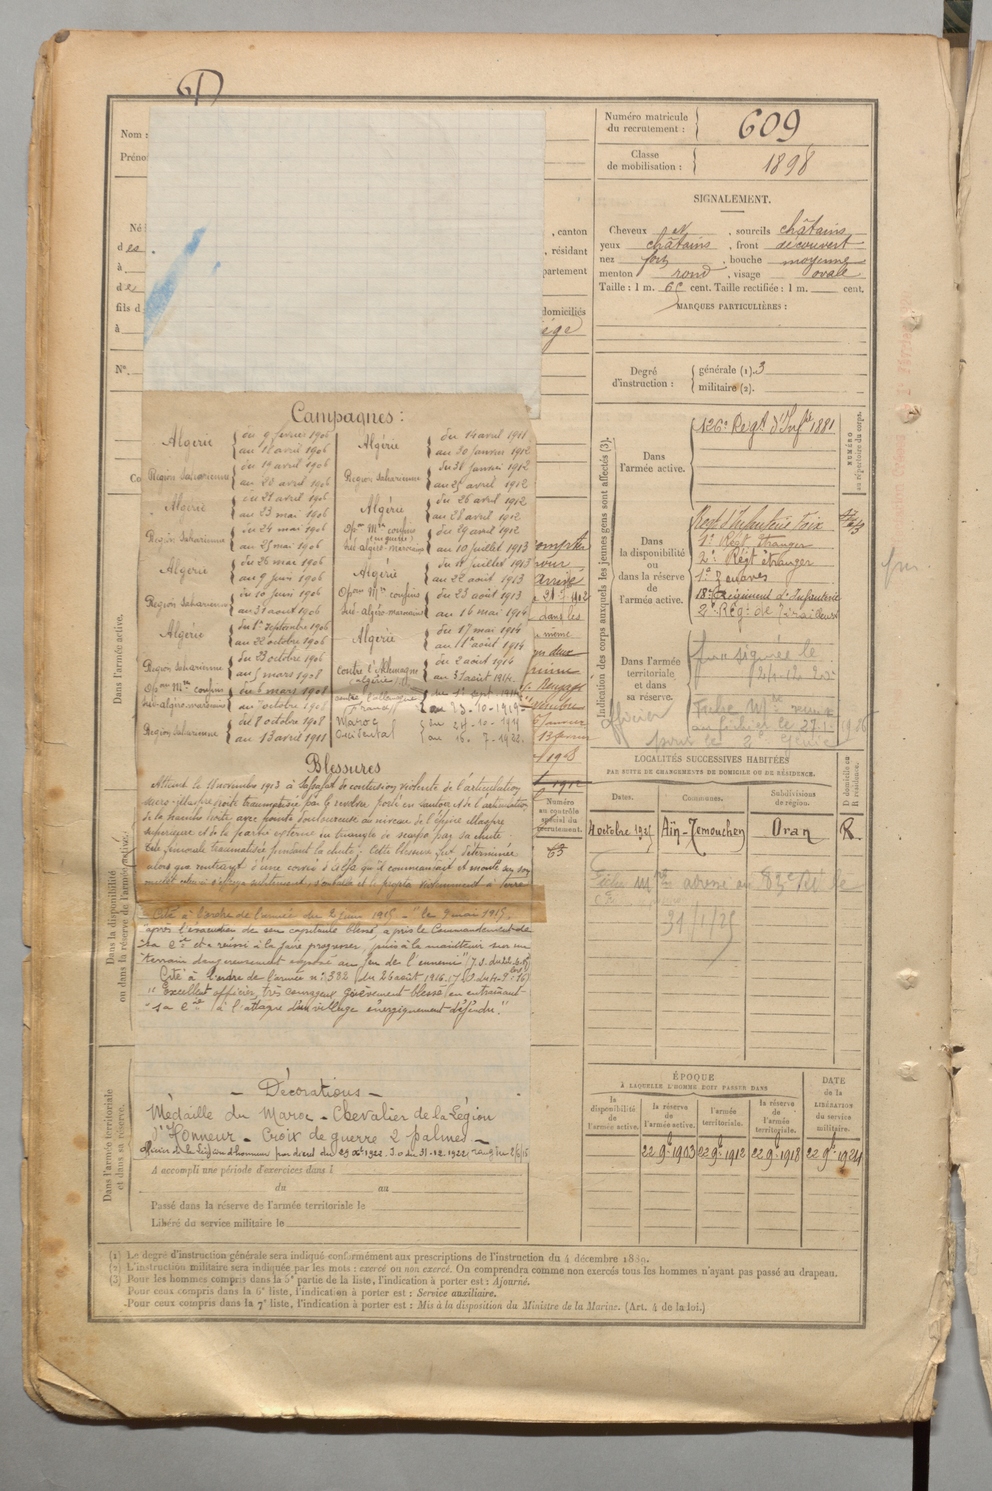 Nom :
Prénom
Né
des
à
de
fils d
à
N°.
, canton
, résidant
partement
domiciliés
iége
Numéro matricule du recrutement : 609
Classe de mobilisation : 1898
SIGNALEMENT.
Cheveux et , sourcils châtains
yeux châtains , front découvert
nez fort , bouche moyenne
menton rond , visage ovale
Taille : 1 m. cent. Taille rectifiée : 1 m. cent.
MARQUES PARTICULIÈRES :
Degré d'instruction : générale (1). 3
militaire (2).
Indication des corps auxquels les jeunes gens sont affectés (3).
NUMÉRO au répertoire du corps.
Dans l'armée active.
126e Régt d'Infrie 1881
Dans la disponibilité ou dans la réserve de l'armée active.
Régt d'Infanterie Foix
1er Régt étranger
2e Régt étranger
1er Zouaves
18e Régiment d'Infanterie
2e Rég. de Tirailleurs
Dans l'armée territoriale et dans sa réserve.
officier
Campagnes :
Algérie du 9 février 1906
au 18 avril 1906
Région Saharienne du 19 avril 1906
au 20 avril 1906
Algérie du 21 avril 1906
au 23 mai 1906
Région Saharienne du 24 mai 1906
au 25 mai 1906
Algérie du 26 mai 1906
au 9 juin 1906
Région Saharienne du 10 juin 1906
au 31 août 1906
Algérie du 1er septembre 1906
au 22 octobre 1906
Région Saharienne du 23 octobre 1906
au 5 mars 1908
Opons Mres confins sud-algéro-marocains du 6 mars 1908
au 7 octobre 1908
Région Saharienne du 8 octobre 1908
au 13 avril 1911
Algérie du 14 avril 1911
au 30 janvier 1912
Région Saharienne du 31 janvier 1912
au 25 avril 1912
Algérie du 26 avril 1912
au 28 avril 1912
Opons Mres confins (en guerre) sud-algéro-marocains du 29 avril 1912
au 10 juillet 1913
Algérie du 11 juillet 1913
au 22 août 1913
Opons Mres confins sud-algéro-marocains du 23 août 1913
au 16 mai 1914
Algérie du 17 mai 1914
au 1er août 1914
Contre l'Allemagne (Algérie) du 2 août 1914
au 31 août 1914.
contre l'allemagne (France) du 1er sept. 1914
au 23-10-1919
Maroc occidental du 24-10-1919
au 15. 7-1922.
Blessures
Atteint le 11 novembre 1913 à de contusion violente de l'articulation
sacro-iliaque droite traumatisée par le revolver porté en sautoir et de l'articulation
de la hanche droite, avec pointe douloureuse au niveau de l'épine iliaque
supérieure et de la partie externe du triangle de scarpa par sa chute.
tête fémorale traumatisée pendant la chute ; Cette blessure fut déterminée
alors que rentrant d'une corvée d'alfa qu'il commandait et monté sur son
mulet celui-ci subitement, s'emballa et le projeta violemment à terre
Cité à l'ordre de l'armée du 2 juin 1915 - "le 9 mai 1915,
"après l'évacuation de son capitaine blessé, a pris le Commandement de
"sa Cie et a réussi à la faire progresser, puis à la maintenir sur un
"terrain dangereusement exposé au feu de l'ennemi"
Cité à l'ordre de l'armée n° 382 du 26 août 1916.
"Excellent officier, très courageux grièvement blessé en entraînant
"sa Cie à l'attaque d'un village énergiquement défendu."
Décorations
Médaille du Maroc - Chevalier de la Légion
d'Honneur - Croix de guerre 2 palmes
officier de la Légion d'honneur par décret du 29 Xbre 1922. J.o du 31.12.1922
A accompli une période d'exercices dans l
du au
Passé dans la réserve de l'armée territoriale le
Libéré du service militaire le
Dans l'armée active.
Dans la disponibilité ou dans la réserve de l'armée active.
Dans l'armée territoriale et dans sa réserve.
Numéro au contrôle spécial du recrutement.
63
LOCALITÉS SUCCESSIVES HABITÉES
PAR SUITE DE CHANGEMENTS DE DOMICILE OU DE RÉSIDENCE.
Dates. Communes. Subdivisions de région. D domicile ou R résidence.
4 octobre 1925 Aïn-Temouchen Oran R.
31/1/25
ÉPOQUE
À LAQUELLE L'HOMME DOIT PASSER DANS
la disponibilité de l'armée active. la réserve de l'armée active. l'armée territoriale. la réserve de l'armée territoriale.
DATE de la LIBÉRATION du service militaire.
22 9bre 1903 22 9bre 1912 22 9bre 1918 22 9bre 1924
(1) Le degré d'instruction générale sera indiqué conformément aux prescriptions de l'instruction du 4 décembre 1889.
(2) L'instruction militaire sera indiquée par les mots : exercé ou non exercé. On comprendra comme non exercés tous les hommes n'ayant pas passé au drapeau.
(3) Pour les hommes compris dans la 5e partie de la liste, l'indication à porter est : Ajourné.
Pour ceux compris dans la 6e liste, l'indication à porter est : Service auxiliaire.
Pour ceux compris dans la 7e liste, l'indication à porter est : Mis à la disposition du Ministre de la Marine. (Art. 4 de la loi.)